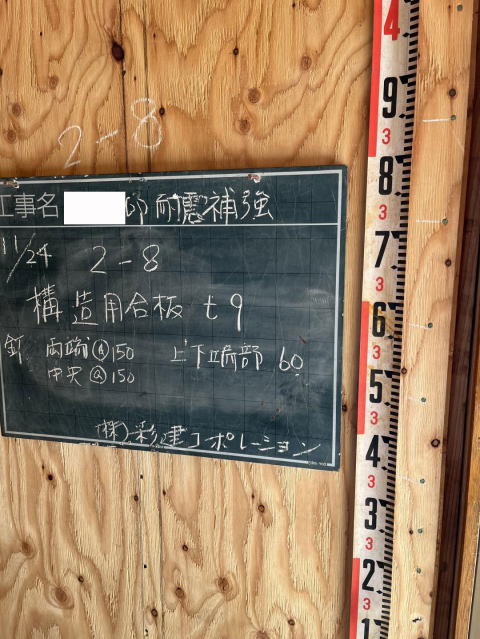 2-8
工事名 邸耐震補強
11/24 2-8
構造用合板 t9
釘 両端@150 上下端部 60
中央@150
(株)彩建コーポレーション
4
9
3
8
3
7
3
6
3
5
3
4
3
3
3
2
3
1